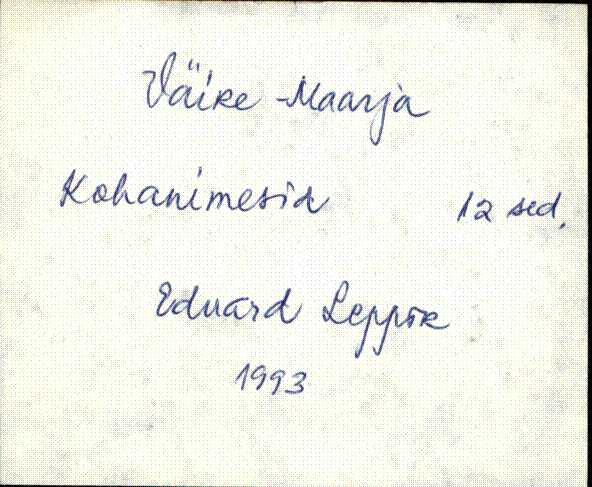 Väike-Maarja
Kohanimesid 12 sed.
Eduard Leppik
1993